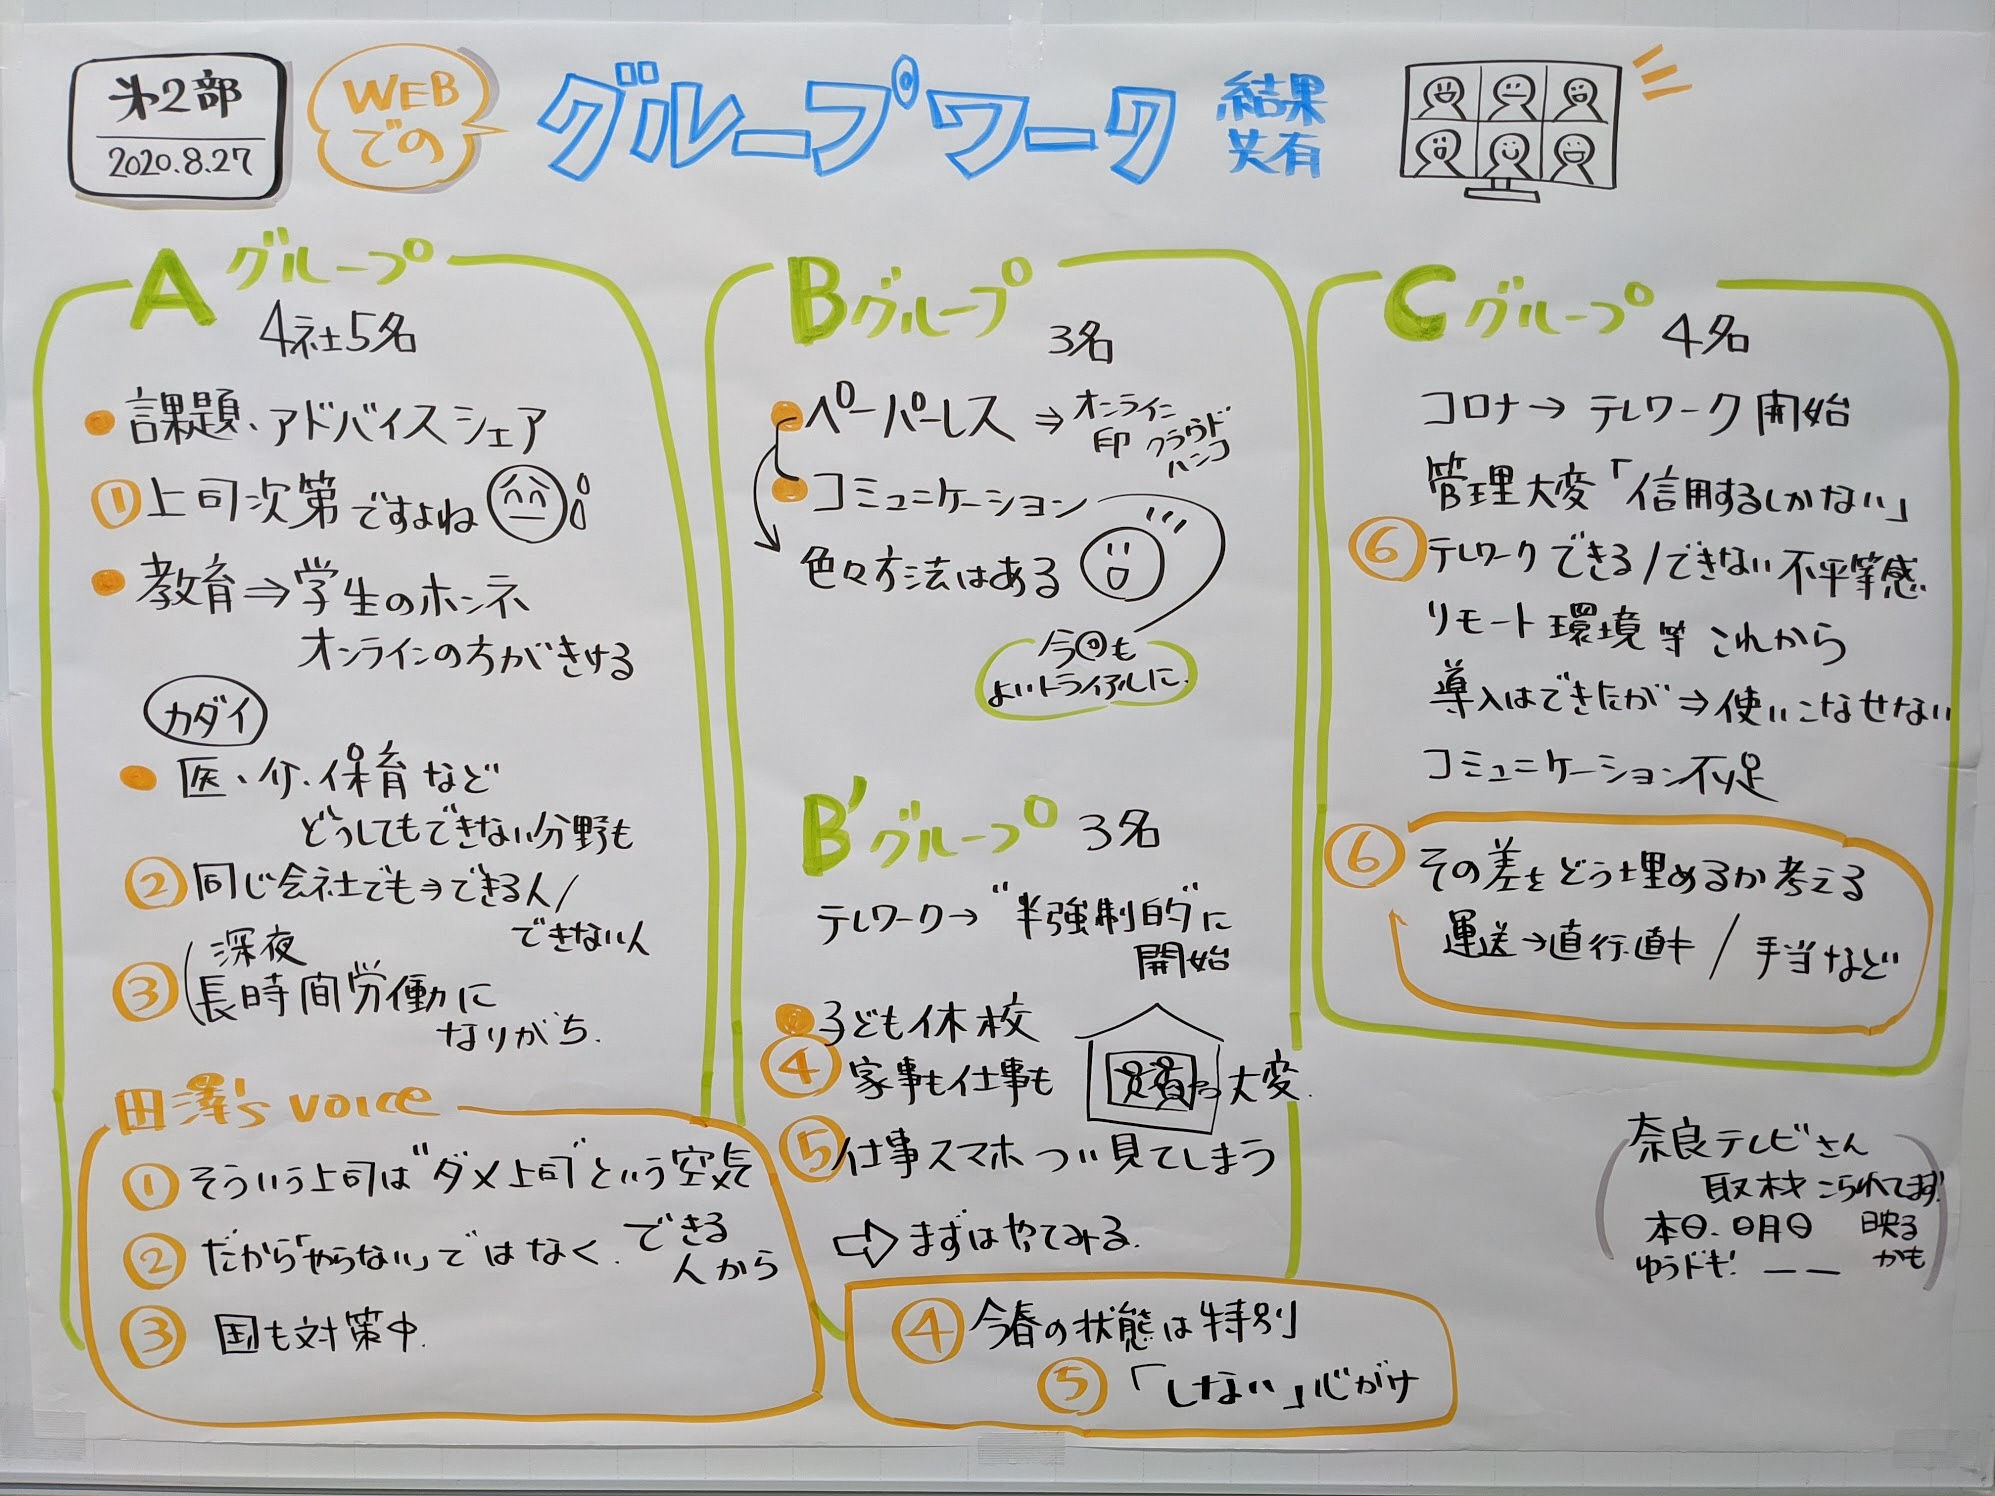 第2部
2020.8.27
WEB
での
グループワーク
結果
共有
Aグループ
4社5名
課題、アドバイスシェア
①上司次第ですよね
教育⇒学生のホンネ
オンラインの方がきける
カダイ
医・介・保育など
どうしてもできない分野も
②同じ会社でも→できる人/
できない人
深夜
③長時間労働に
なりがち.
田澤's voice
①そういう上司は"ダメ上司"という空気
②だから「やらない」ではなく.できる
人から
③国も対策中.
Bグループ
3名
ペーパーレス⇒オンライン
印 クラウド
ハンコ
コミュニケーション
色々方法はある
今回も
よいトライアルに.
B'グループ 3名
テレワーク→"半強制的"に
開始
子ども休校
④家事も仕事も
大変.
⑤仕事スマホつい見てしまう
⇨まずはやってみる.
④今春の状態は特別
⑤「しない」心がけ
Cグループ 4名
コロナ→テレワーク開始
管理大変「信用するしかない」
⑥テレワークできる/できない不平等感
リモート環境等これから
導入はできたが⇒使いこなせない
コミュニケーション不足
⑥その差をどう埋めるか考える
運送→直行.直キ/手当など
奈良テレビさん
取材こられてます!
本日.日月日 映る
ゆうドキ! ーー かも